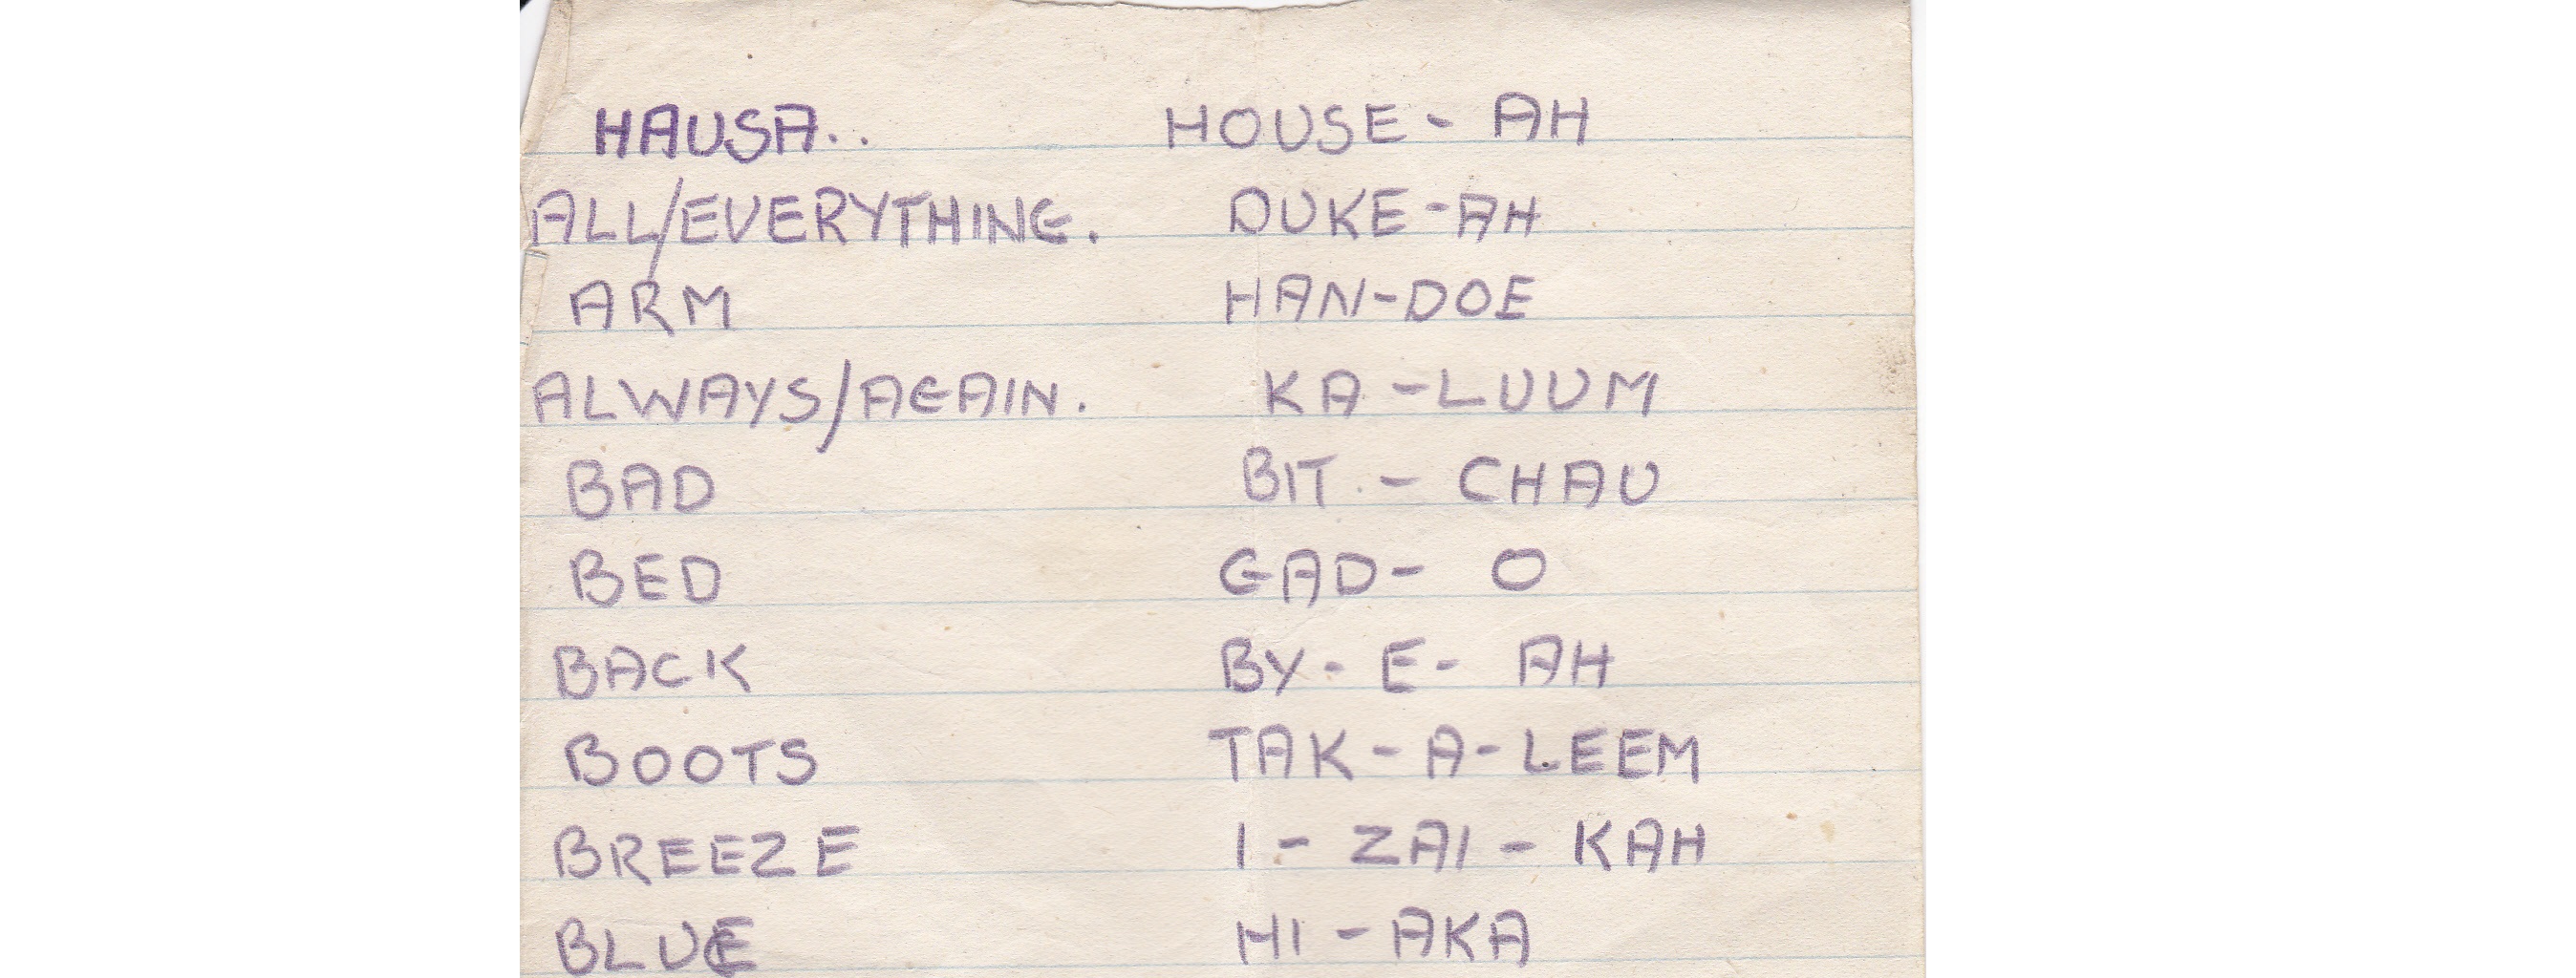 HAUSA.. HOUSE - AH
ALL/EVERYTHING. DUKE - AH
ARM HAN-DOE
ALWAYS/AGAIN. KA - LUUM
BAD BIT - CHAU
BED GAD- O
BACK BY - E - AH
BOOTS TAK - A - LEEM
BREEZE I - ZAI - KAH
BLUE HI - AKA